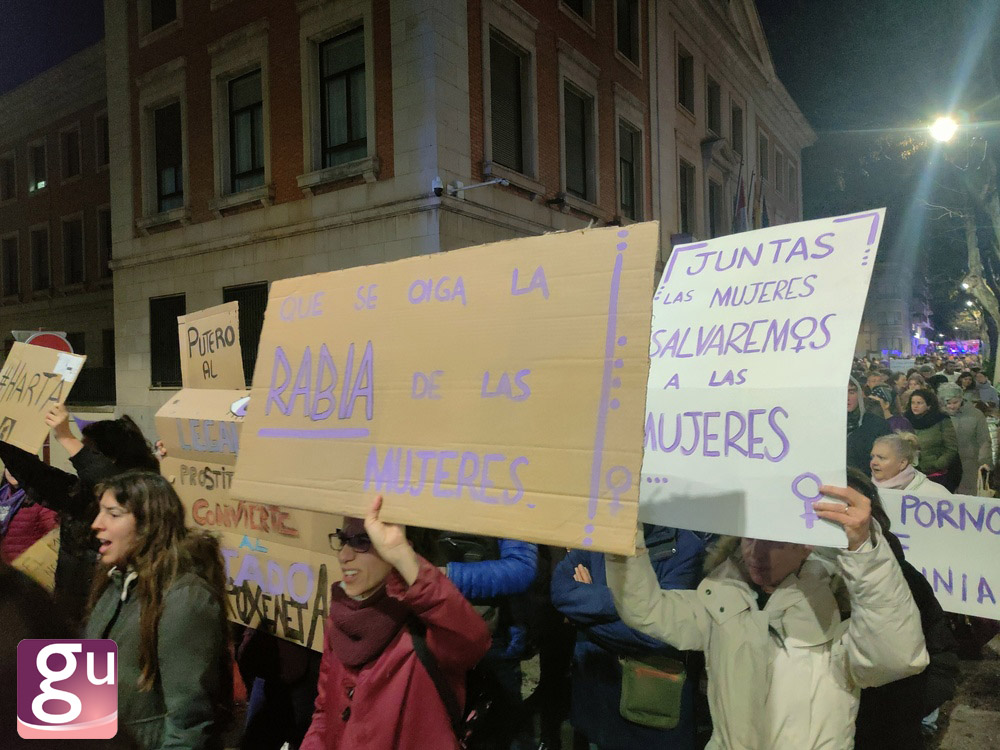 #HARTA
PUTERO
AL
LEGAL
PROSTIT
CONVIERTE
AL
PROXENETA
QUE SE OIGA LA
RABIA DE LAS
MUJERES.
JUNTAS
LAS MUJERES
SALVAREMOS
A LAS
MUJERES
PORNO
=
gu